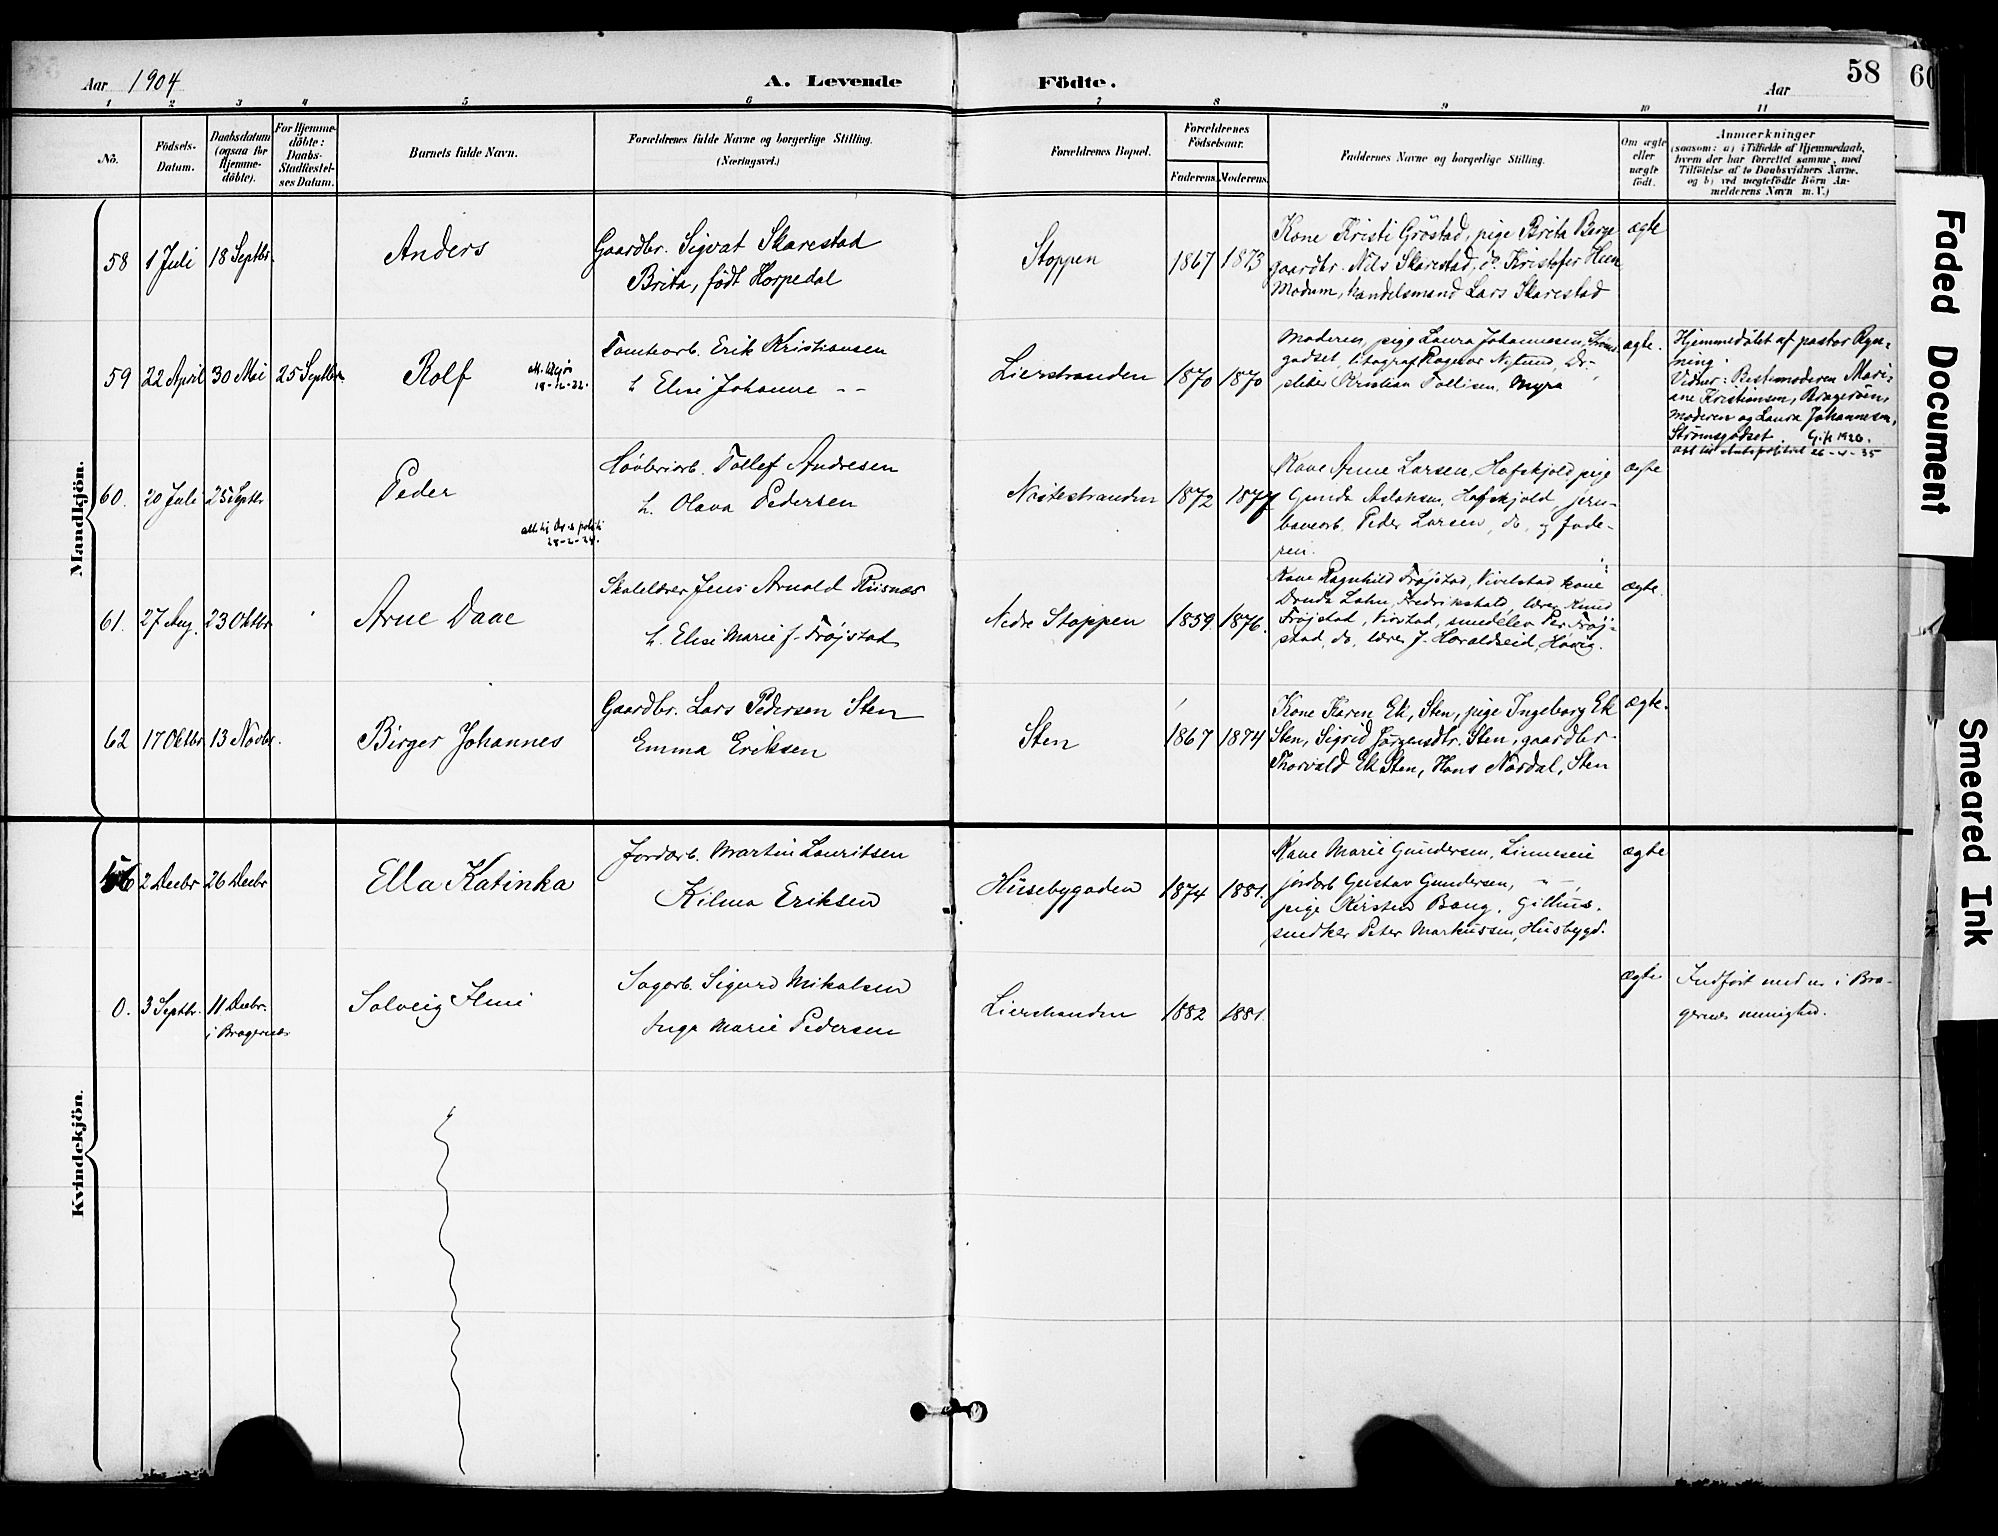 Aar 1904
A. Levende
Födte.
Aar
58
60
1 2 3 4 5 6 7 8 9 10 11
Nô.
Födsels-
Datum.
Daabsdatum
(ogsaa for
Hjemme-
döbte).
For Hjemme-
döbte:
Daabs-
Stadfæstel-
ses Datum.
Barnets fulde Navn.
Forældrenes fulde Navne og borgerlige Stilling.
(Næringsvei.)
Forældrenes Bopæl.
Forældrenes
Födselsaar.
Faderens. Moderens.
Faddernes Navne og borgerlige Stilling.
Om ægte
eller
uægte
födt.
Anmærkninger
(saasom: a) i Tilfælde af Hjemmedaab,
hvem der har forrettet samme, med
Tilföielse af to Daabsvidners Navne,
og b) ved uægtefödte Börn An-
melderens Navn m. V.)
Mandkjön.
58 1 Juli 18 Septbr.
Anders
Gaardbr. Sigvat Skarestad
Brita, født Horpedal
Stoppen
1867 1873
Kone Kristi Gröstad, pige Brita Berge
gaardbr. Nils Skarestad, do. Kristofer Heen
Modum, handelsmand Lars Skarestad
ægte
59 22 April 30 Mai 25 Septbr.
Rolf
18-12-22.
Tomtearb. Erik Kristiansen
h. Elise Johanne - -
Lierstranden
1870 1870
Moderen, pige Laura Johannesen, Strøms-
godset, litograf Ragnar Nylund, Dr-
sliker Kristian Tollisen, Myra
ægte.
Hjemmedöbt af pastor Ryn-
ning.
Vidner: Bestemoderen Mari-
ane Kristiansen, Bragerøen,
Moderen og Laura Johannesen,
Strömsgodset. Gift 1920.
att til Amtspolitiet 26-4-35
60. 20 Juli 25 Septbr
Peder
Høvleriarb. Tollef Andresen
h. Olava Pedersen
Nøstestranden
1872 1877
Kone Anne Larsen, Hofskjold, pige
Gunda Aslaksen, Hofskjold, jern-
banearb. Peder Larsen, do. og fade-
ren.
ægte
61. 27 Aug. 23 Oktbr.
Arne Daae
Skolelærer Jens Arnold Riisnæs
h. Elise Marie f. Frøjstad
Nedre Stoppen
1859. 1876.
Kone Ragnhild Frøjstad, Vivelstad kone
Fredrikshald, lærer Knud
Frøjstad, Vivstad, smedelev Per Frøj-
stad, do, lærer J. Haraldseid, Høvig.
ægte.
62 17 Oktbr 13 Novbr.
Birger Johannes
Gaardbr. Lars Pedersen Sten
Emma Eriksen
Sten
1867 1874
Kone Karen Ek, Sten, pige Ingeborg Ek
Sten, Sigrid Jørgensdtr. Sten, gaardbr.
Thorvald Ek Sten, Hans Nordal, Sten
ægte.
Kvindekjön.
56 2 Decbr 26 Decbr
Ella Katinka
Jordarb. Martin Lauritsen
Hilma Eriksen
Husebygaden
1874 1881.
Kone Marie Gundersen, Linneseie
jordarb Gustav Gundersen, - -
pige Kirsten Bang, Gilhus.
snedker Peter Markussen, Husbygd.
ægte
0. 3 Septbr. 11 Decbr.
i Bragernæs
Solveig
Sagarb. Sigurd Mikalsen
Inga Marie Pedersen
Lierstranden
1882 1881.
ægte
Indført med nr i Bra-
gernæs menighed.
Faded Document
Smeared Ink